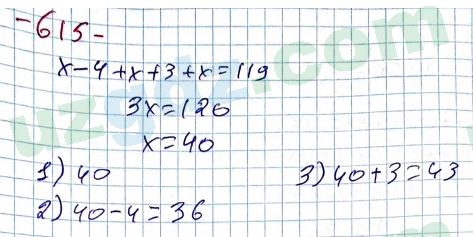 -615-
x-4+x+3+x=119
3x=120
x=40
1) 40
3) 40+3=43
2) 40-4=36